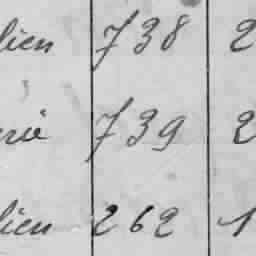 lien 738 2
rie 739 2
lien 262 1